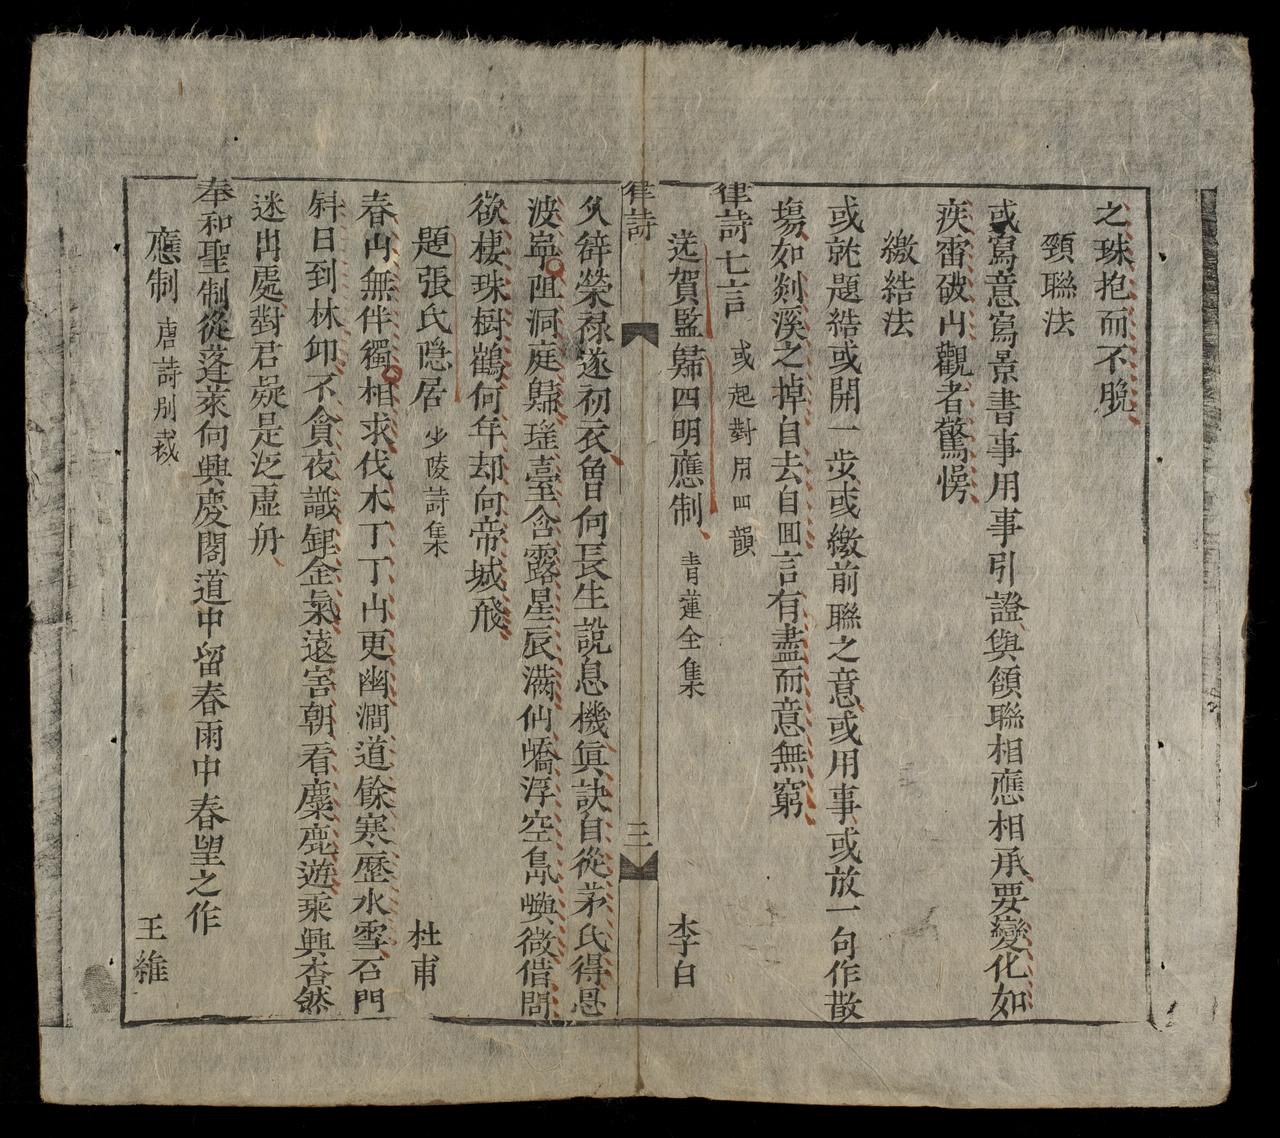 之珠抱而不脫
頸聯法
或寫意寫景書事用事引證與領聯相應相承要變化如
疾雷破山觀者驚愕
繳結法
或就題結或開一步或繳前聯之意或用事或放一句作散
塲如剡溪之掉自去自囬言有盡而意無窮
律詩七言 或起對用四韻
送賀監歸四明應制 青蓮全集 李白
律詩 三
久辞榮禄遂初衣曾何長生說息機眞訣自從茅氏得恩
波寧阻洞庭歸瑤臺含露星辰满仙嶠浮空島嶼微借問
欲棲珠樹鶴何年却向帝城飛
題張氏隐居 少陵詩集 杜甫
春山無伴獨相求伐木丁丁山更幽澗道餘寒歷氷雪石門
斜日到林丘不貪夜識銀金氣遠害朝看麋鹿遊乘興杳然
迷出處對君疑是泛虛舟
奉和聖制從蓬萊向興慶閣道中留春雨中春望之作
應制 唐詩別裁 王維